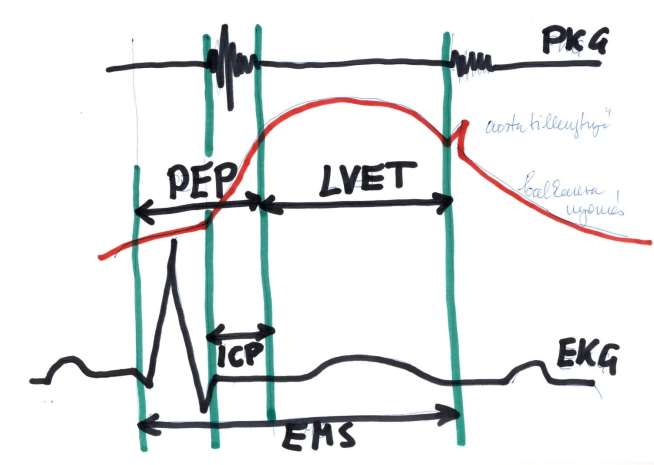 PKG
aorta billentyű
PEP
LVET
balkamra
nyomás
ICP
EKG
EMS